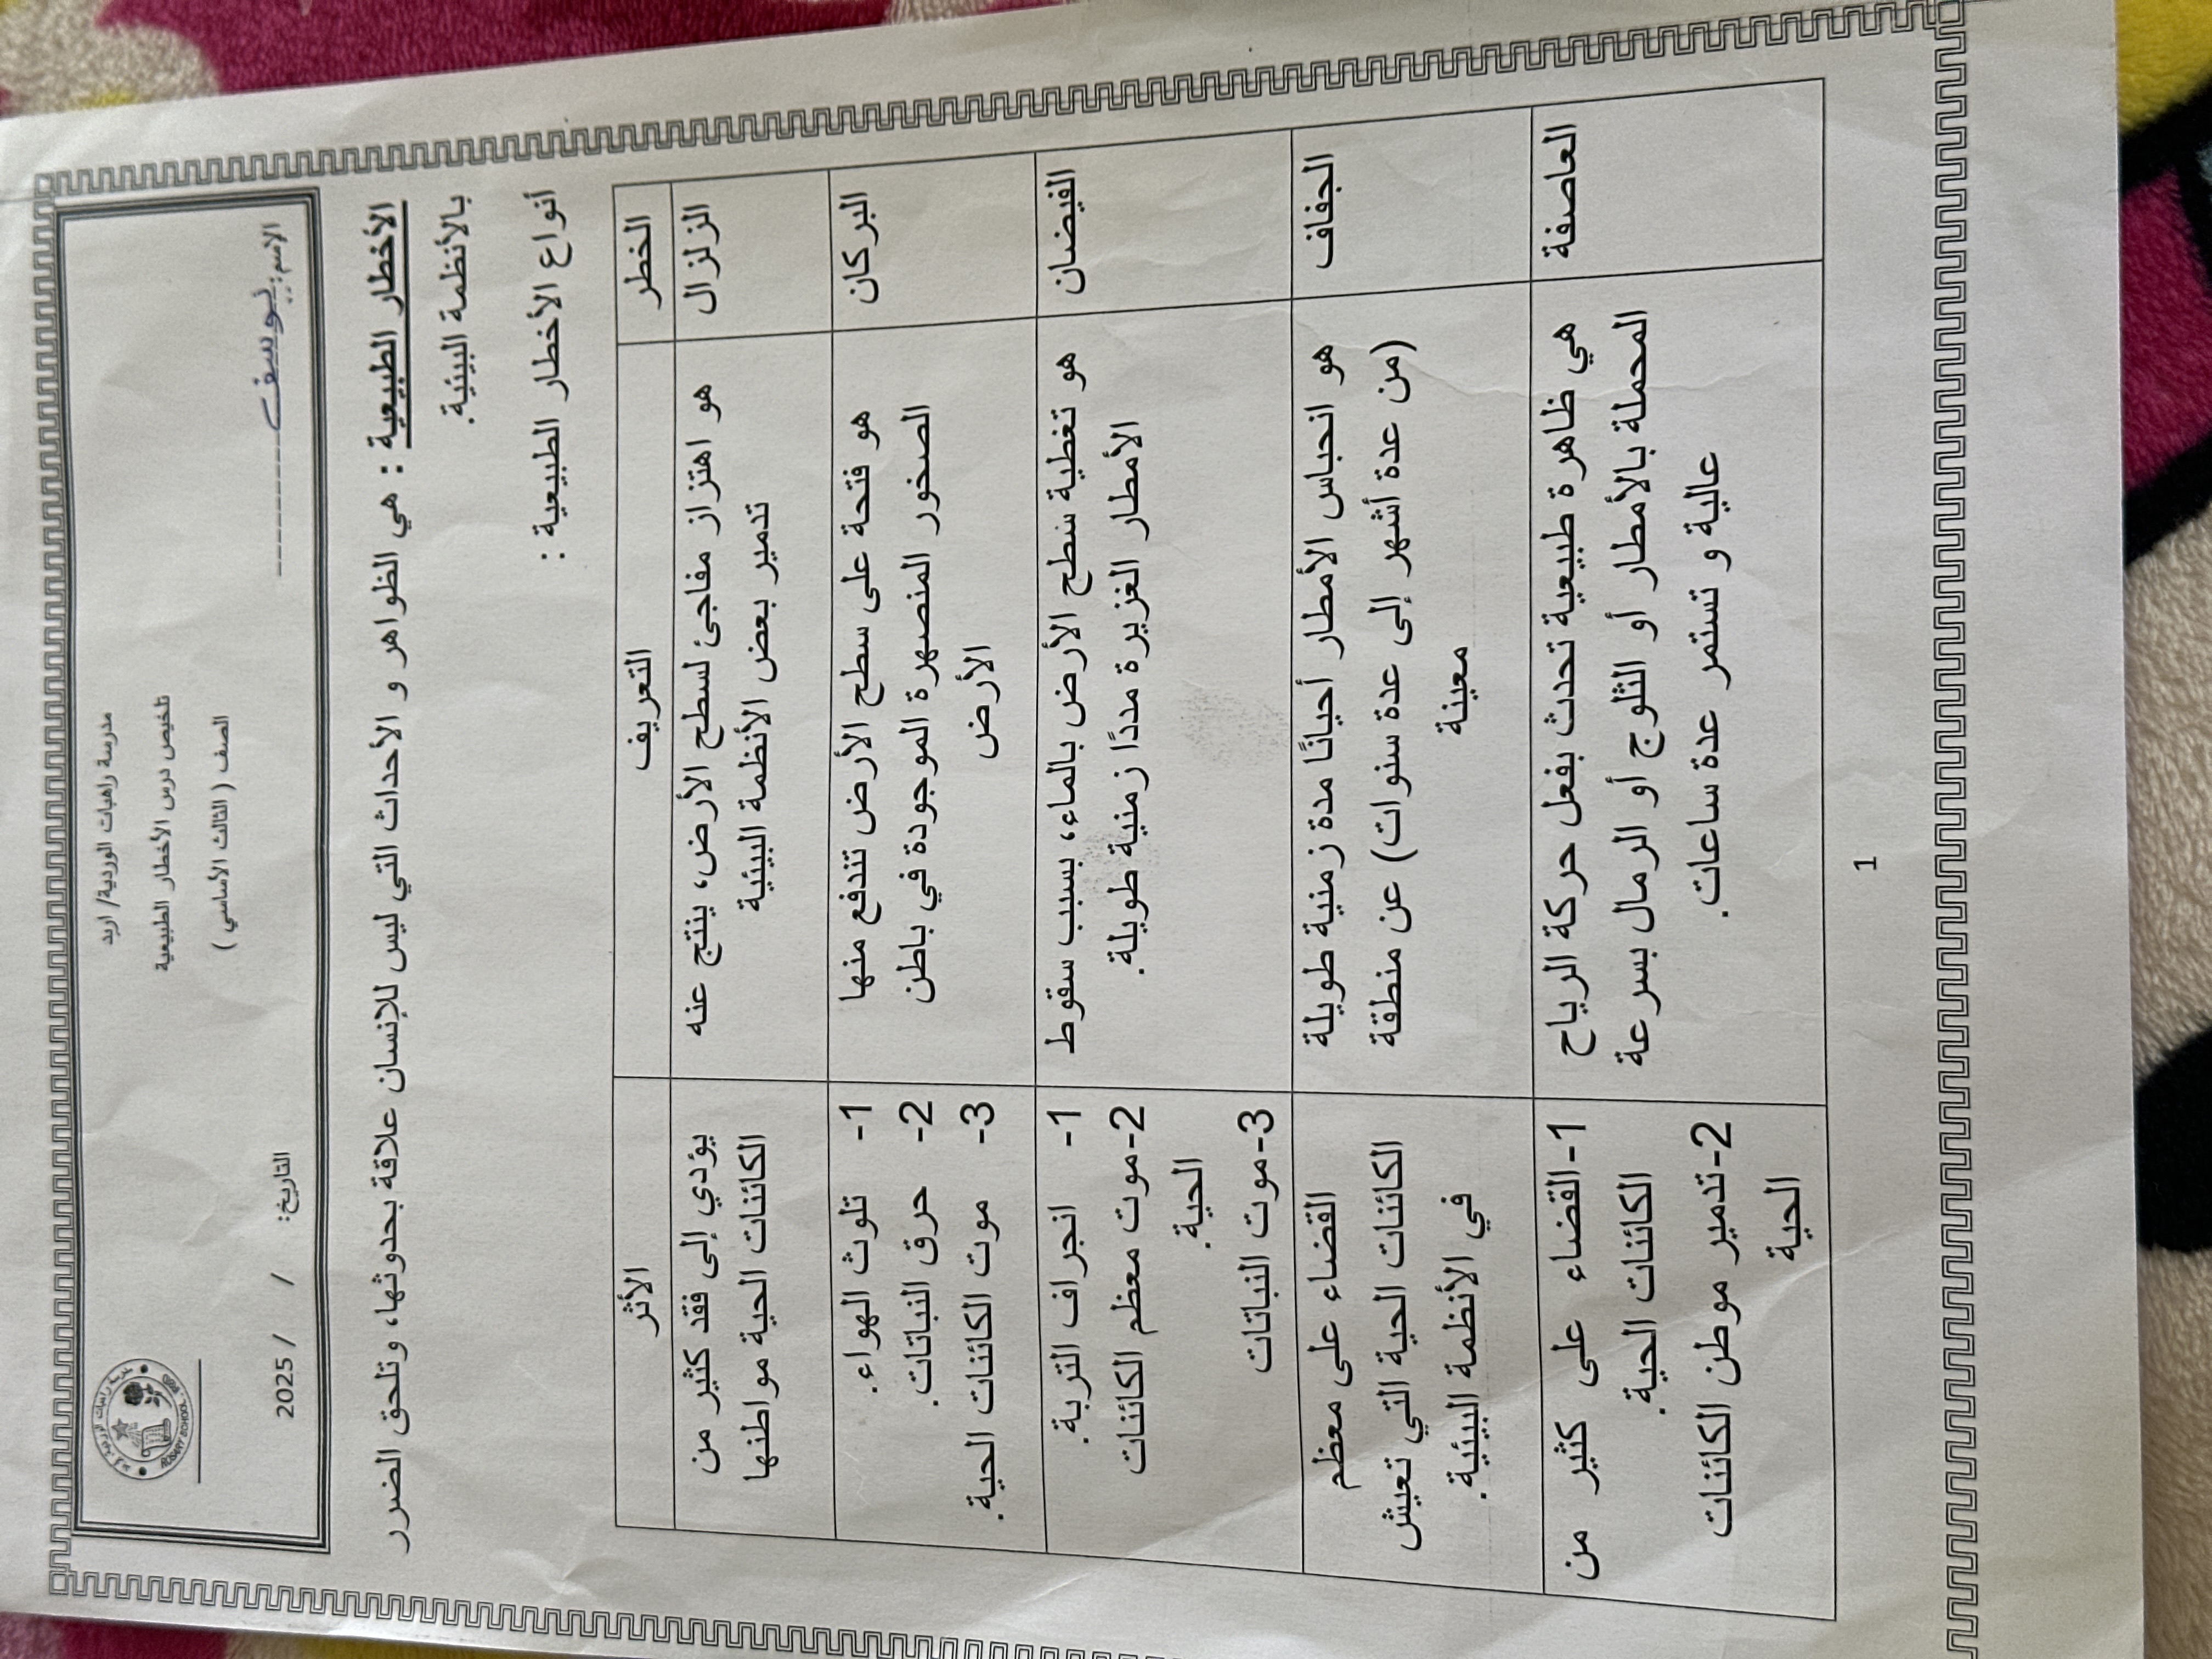 مدرسة راهبات الوردية/ اربد
تلخيص درس الأخطار الطبيعية
الصف ( الثالث الأساسي )
ROSARY SCHOOL
الاسم: يوسف
التاريخ: / / 2025
الأخطار الطبيعية : هي الظواهر و الأحداث التي ليس للإنسان علاقة بحدوثها، وتلحق الضرر
بالأنظمة البيئية.
أنواع الأخطار الطبيعية :
الخطر التعريف الأثر
الزلزال
هو اهتزاز مفاجئ لسطح الأرض، ينتج عنه
تدمير بعض الأنظمة البيئية
يؤدي إلى فقد كثير من
الكائنات الحية مواطنها
البركان
هو فتحة على سطح الأرض تندفع منها
الصخور المنصهرة الموجودة في باطن
الأرض
1- تلوث الهواء.
2- حرق النباتات.
3- موت الكائنات الحية.
الفيضان
هو تغطية سطح الأرض بالماء، بسبب سقوط
الأمطار الغزيرة مددًا زمنية طويلة.
1- انجراف التربة.
2-موت معظم الكائنات
الحية.
3-موت النباتات
الجفاف
هو انحباس الأمطار أحيانًا مدة زمنية طويلة
(من عدة أشهر إلى عدة سنوات) عن منطقة
معينة
القضاء على معظم
الكائنات الحية التي تعيش
في الأنظمة البيئية.
العاصفة
هي ظاهرة طبيعية تحدث بفعل حركة الرياح
المحملة بالأمطار أو الثلوج أو الرمال بسرعة
عالية و تستمر عدة ساعات.
1-القضاء على كثير من
الكائنات الحية.
2-تدمير موطن الكائنات
الحية
1